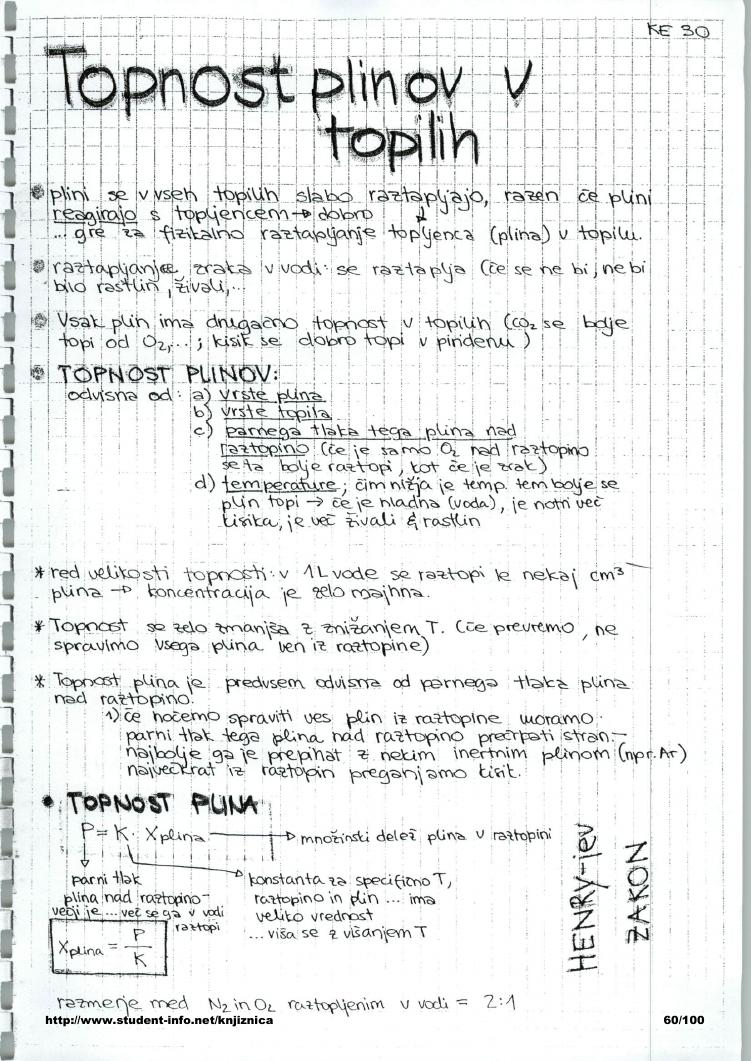 KE 30
Topnost plinov v
topilih
plini se v vseh topilih slabo raztapljajo, razen če plini
reagirajo s topljencem → dobro ↓
... gre za fizikalno raztapljanje topljenca (plina) v topilu.
raztapljanje zraka v vodi: se raztaplja (če se ne bi, ne bi
bilo rastlin, živali,...
Vsak plin ima drugačno topnost v topilih (CO₂ se bolje
topi od O₂,...; kisik se dobro topi v piridenu)
TOPNOST PLINOV:
odvisna od: a) vrste plina
b) vrste topila
c) parnega tlaka tega plina nad
raztopino (če je samo O₂ nad raztopino
se ta bolje raztopi, kot če je zrak)
d) temperature; čim nižja je temp. tem bolje se
plin topi → če je hladna (voda), je notri več
kisika, je več živali & rastlin
* red velikosti topnosti: v 1L vode se raztopi le nekaj cm³
plina → koncentracija je zelo majhna.
* Topnost se zelo zmanjša z znižanjem T. (če prevremo, ne
spravimo vsega plina ven iz raztopine)
* Topnost plina je predvsem odvisna od parnega tlaka plina
nad raztopino.
1) če hočemo spraviti ves plin iz raztopine moramo
parni tlak tega plina nad raztopino prečrpati stran -
najbolje ga je prepihat z nekim inertnim plinom (npr. Ar)
največkrat iz raztopin preganjamo kisik.
• TOPNOST PLINA
P = K · Xplina → množinski delež plina v raztopini
parni tlak
plina nad raztopino -
večji je ... več se ga v vodi
raztopi
konstanta za specifično T,
raztopino in plin ... ima
veliko vrednost
... viša se z višanjem T
Xplina = P/K
HENRY-jev
ZAKON
razmerje med N₂ in O₂ raztopljenim v vodi = 2:1
http://www.student-info.net/knjiznica
60/100